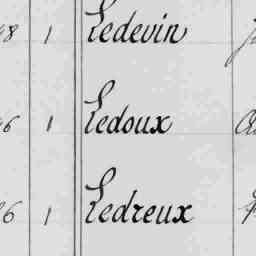 8 1 Ledevin
6 1 Ledoux
6 1 Ledreux